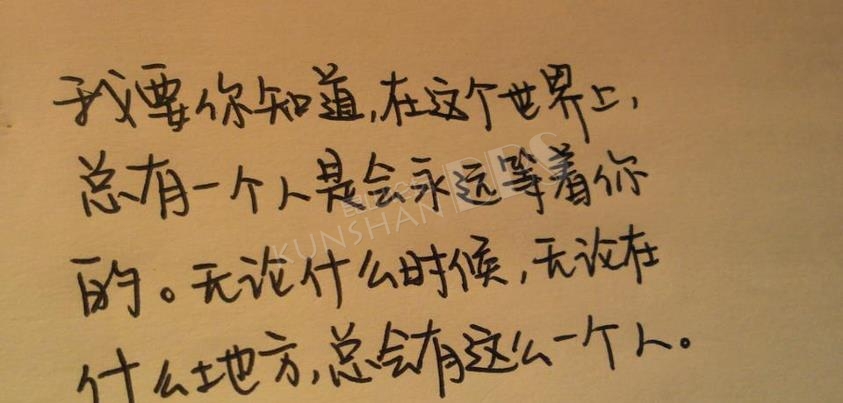 我要你知道,在这个世界上,
总有一个人是会永远等着你
的。无论什么时候,无论在
什么地方,总会有这么一个人。
KUNSHAN BBS